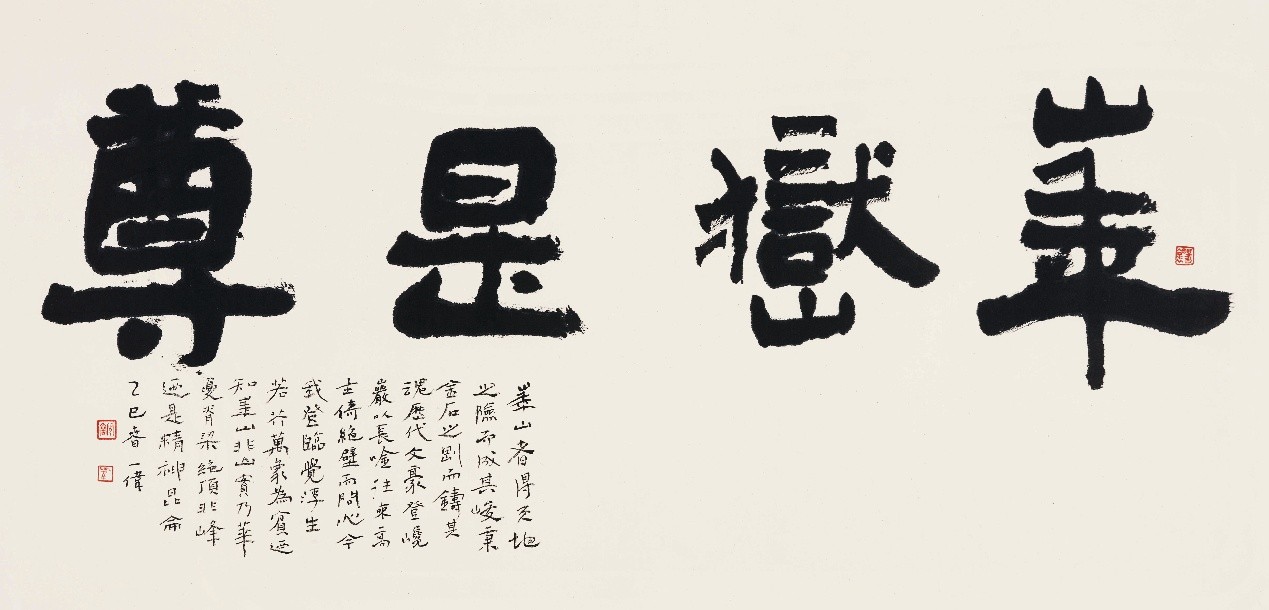 崋嶽是尊
崋山者得天地
之險而成其峻秉
金石之剛而鑄其
魂歷代文豪登巉
巖以長唫往來高
士倚絶壁而問心今
我登臨覺浮生
若芥萬象為賓迺
知崋山非山實乃華
夏脊梁絶頂非峰
迺是精神昆侖
乙巳春一偉